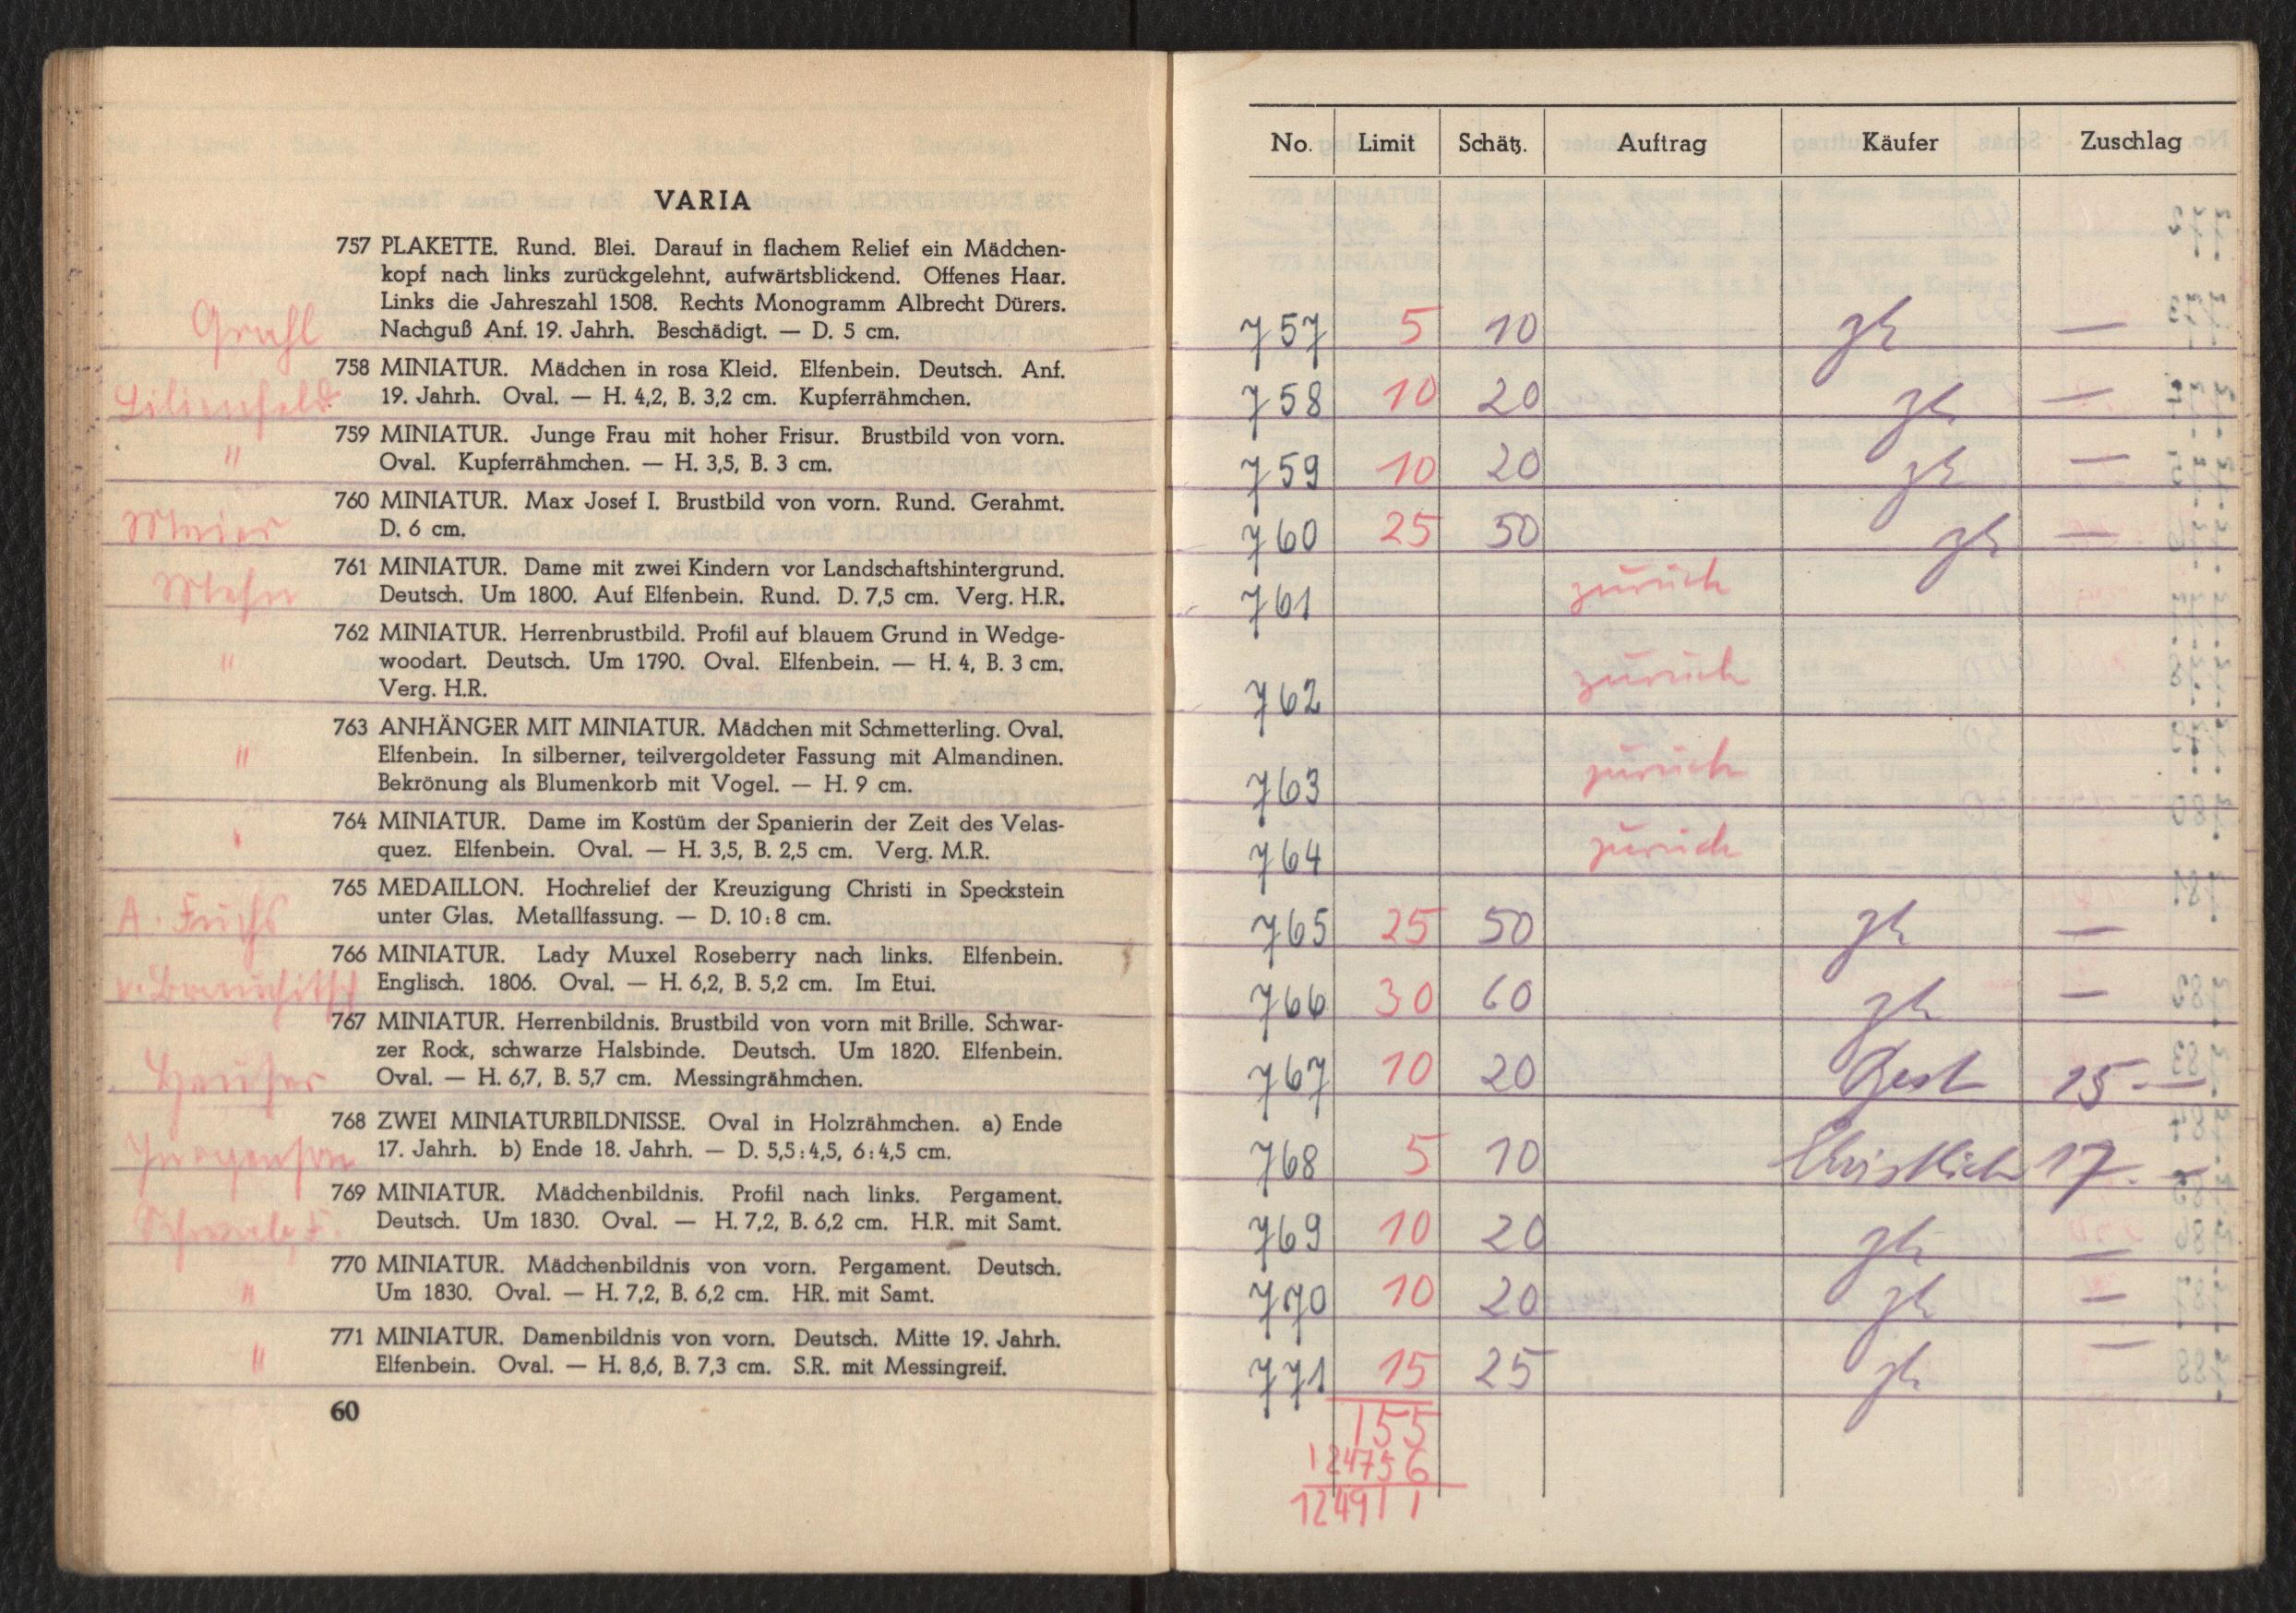 VARIA
757 PLAKETTE. Rund. Blei. Darauf in flachem Relief ein Mädchen-
kopf nach links zurückgelehnt, aufwärtsblickend. Offenes Haar.
Links die Jahreszahl 1508. Rechts Monogramm Albrecht Dürers.
Grahl Nachguß Anf. 19. Jahrh. Beschädigt. — D. 5 cm.
758 MINIATUR. Mädchen in rosa Kleid. Elfenbein. Deutsch. Anf.
Lilienfeld 19. Jahrh. Oval. — H. 4,2, B. 3,2 cm. Kupferrähmchen.
759 MINIATUR. Junge Frau mit hoher Frisur. Brustbild von vorn.
" Oval. Kupferrähmchen. — H. 3,5, B. 3 cm.
760 MINIATUR. Max Josef I. Brustbild von vorn. Rund. Gerahmt.
Meier D. 6 cm.
761 MINIATUR. Dame mit zwei Kindern vor Landschaftshintergrund.
Deutsch. Um 1800. Auf Elfenbein. Rund. D. 7,5 cm. Verg. H.R.
762 MINIATUR. Herrenbrustbild. Profil auf blauem Grund in Wedge-
" woodart. Deutsch. Um 1790. Oval. Elfenbein. — H. 4, B. 3 cm.
Verg. H.R.
763 ANHÄNGER MIT MINIATUR. Mädchen mit Schmetterling. Oval.
" Elfenbein. In silberner, teilvergoldeter Fassung mit Almandinen.
Bekrönung als Blumenkorb mit Vogel. — H. 9 cm.
764 MINIATUR. Dame im Kostüm der Spanierin der Zeit des Velas-
" quez. Elfenbein. Oval. — H. 3,5, B. 2,5 cm. Verg. M.R.
765 MEDAILLON. Hochrelief der Kreuzigung Christi in Speckstein
A. Fuchs unter Glas. Metallfassung. — D. 10:8 cm.
766 MINIATUR. Lady Muxel Roseberry nach links. Elfenbein.
v. Brauchitsch Englisch. 1806. Oval. — H. 6,2, B. 5,2 cm. Im Etui.
767 MINIATUR. Herrenbildnis. Brustbild von vorn mit Brille. Schwar-
zer Rock, schwarze Halsbinde. Deutsch. Um 1820. Elfenbein.
Oval. — H. 6,7, B. 5,7 cm. Messingrähmchen.
768 ZWEI MINIATURBILDNISSE. Oval in Holzrähmchen. a) Ende
17. Jahrh. b) Ende 18. Jahrh. — D. 5,5:4,5, 6:4,5 cm.
769 MINIATUR. Mädchenbildnis. Profil nach links. Pergament.
Deutsch. Um 1830. Oval. — H. 7,2, B. 6,2 cm. H.R. mit Samt.
770 MINIATUR. Mädchenbildnis von vorn. Pergament. Deutsch.
" Um 1830. Oval. — H. 7,2, B. 6,2 cm. HR. mit Samt.
771 MINIATUR. Damenbildnis von vorn. Deutsch. Mitte 19. Jahrh.
" Elfenbein. Oval. — H. 8,6, B. 7,3 cm. S.R. mit Messingreif.
60
No. Limit Schätz. Auftrag Käufer Zuschlag
757 5 10 zk —
758 10 20 zk —
759 10 20 zk —
760 25 50 zk —
761 zurück
762 zurück
763 zurück
764 zurück
765 25 50 zk —
766 30 60 zk —
767 10 20 15.—
768 5 10 17.—
769 10 20 zk —
770 10 20 zk —
771 15 25 zk —
155
124756
124911